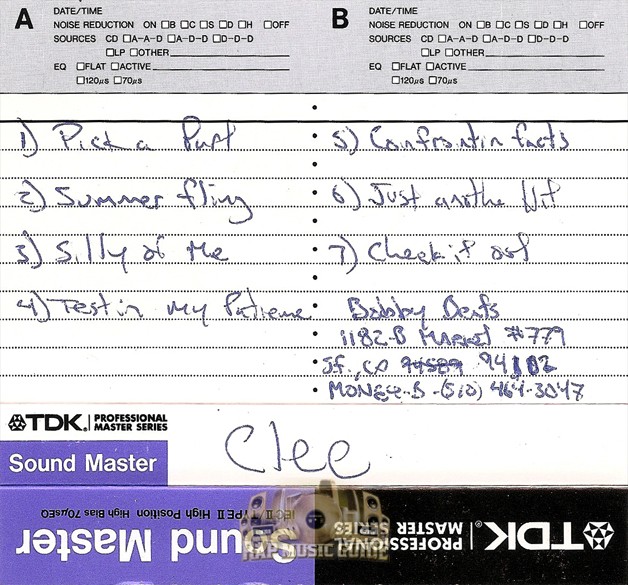 A
DATE/TIME
NOISE REDUCTION ON ☐B ☐C ☐S ☐D ☐H ☐OFF
SOURCES CD ☐A-A-D ☐A-D-D ☐D-D-D
☐LP ☐OTHER
EQ ☐FLAT ☐ACTIVE
☐120µs ☐70µs
1) Pick a Part
2) Summer fling
3) Silly of Me
4) Testin my Patience
B
DATE/TIME
NOISE REDUCTION ON ☐B ☐C ☐S ☐D ☐H ☐OFF
SOURCES CD ☐A-A-D ☐A-D-D ☐D-D-D
☐LP ☐OTHER
EQ ☐FLAT ☐ACTIVE
☐120µs ☐70µs
5) Confrontin facts
6) Just anothe Hit
7) Check it out
Bobby
1182-B Market #779
S.F., CA 94102
MONEY-B - (510) 464-3047
TDK. PROFESSIONAL
MASTER SERIES
Sound Master
Clee
TDK. PROFESSIONAL
MASTER SERIES
IEC II / TYPE II High Position High Bias 70µsEQ
Sound Master
RAP MUSIC GUIDE